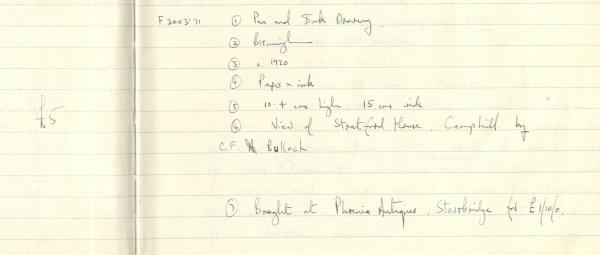 F.3003'71 ① Pen and Ink Drawing.
② Birmingham
③ c. 1920
④ Paper & ink
⑤ 10.4 cms high 15 cms wide
⑥ View of Stratford House, Camphill by
C.F. Bullock
£5
⑦ Bought at Phoenix Antiques, Stourbridge for £1/10/0.